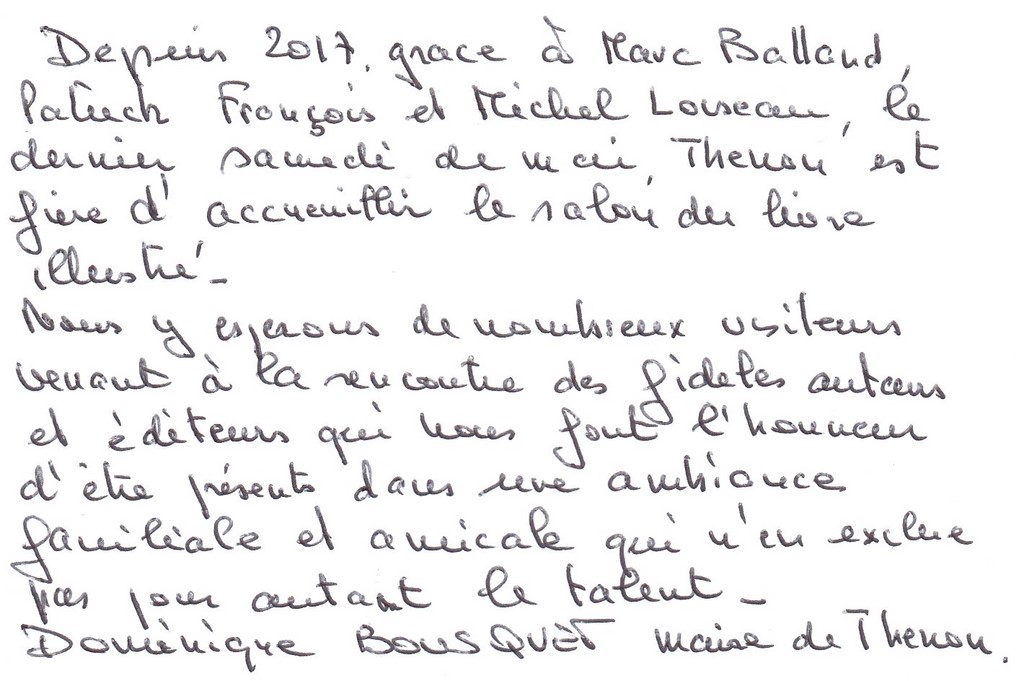 Depuis 2017, grace à Marc Balland,
Patrick François et Michel Loiseau, le
dernier samedi de mai, Thenon est
fière d'accueillir le salon du livre
illustré_
Nous y esperons de nombreux visiteurs
venant à la rencontre des fideles auteurs
et éditeurs qui nous font l'honneur
d'être présents dans une ambiance
familiale et amicale qui n'en exclue
pas pour autant le talent_
Dominique BOUSQUET maire de Thenon.